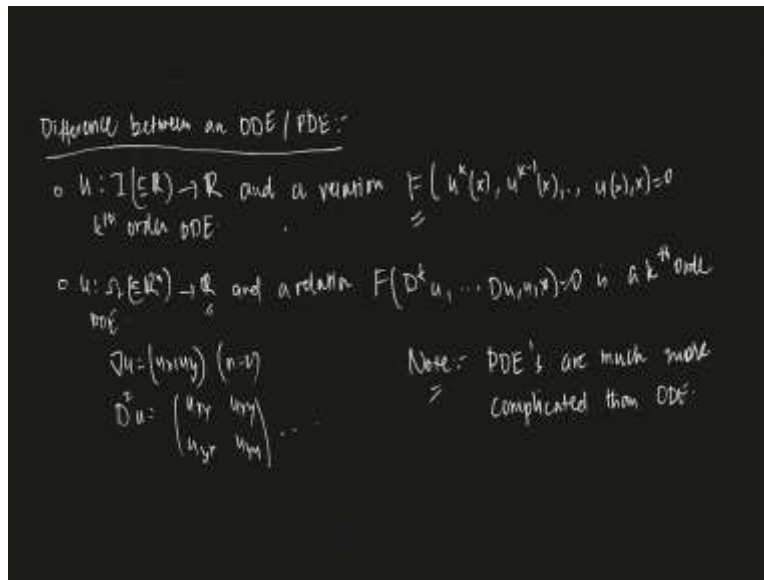 Difference between an ODE / PDE:-
o u: I(⊆R) → R and a relation F(u^k(x), u^{k-1}(x),.., u(x),x)=0
k^th order ODE
o u: Ω(⊆R^n) → R and a relation F(D^k u, ... Du,u,x)=0 is a k^th order
PDE
∇u=(ux,uy) (n=2)
D^2 u= (uxx uxy
uyx uyy) ...
Note:- PDE's are much more
complicated than ODE.